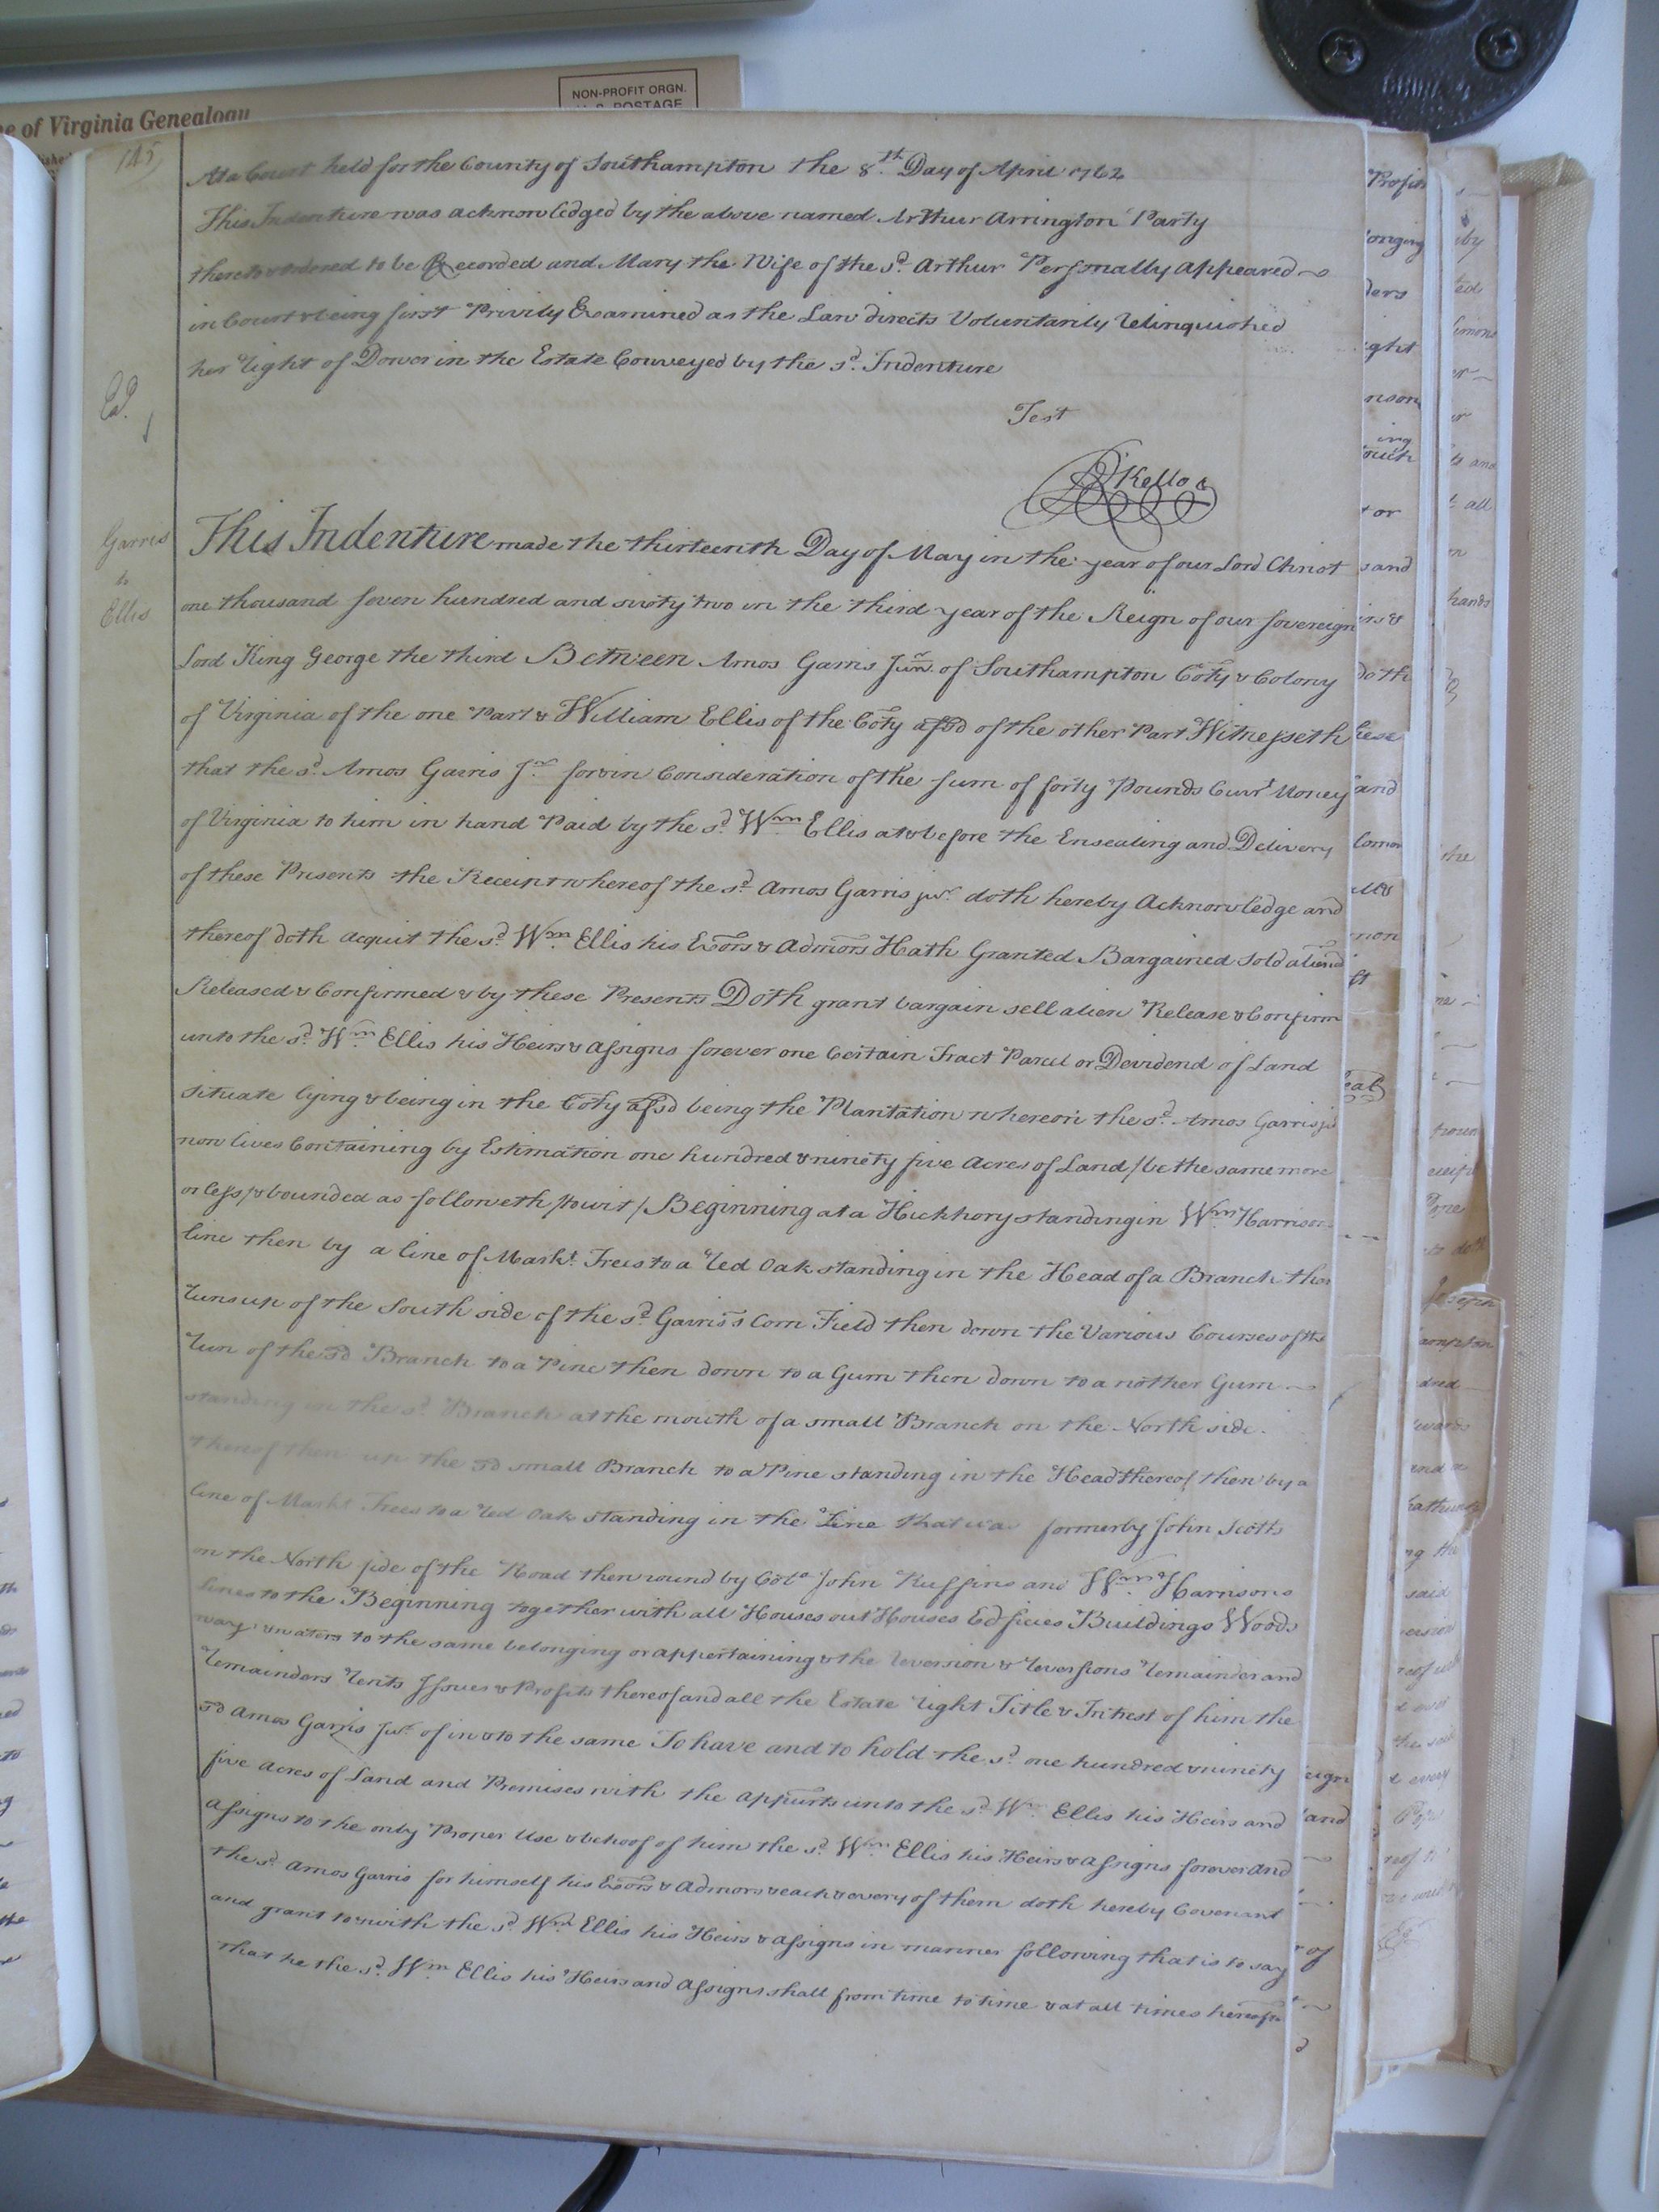 NON-PROFIT ORGN.
U.S. POSTAGE
e of Virginia Genealogy
145
At a Court held for the County of Southampton the 8th. Day of April 1762
This Indenture was acknowledged by the above named Arthur Arrington Party
thereto & ordered to be Recorded and Mary the Wife of the sd. Arthur Personally appeared
in Court & being first Privily Examined as the Law directs Voluntarily Relinquished
her Right of Dower in the Estate Conveyed by the sd. Indenture
Test
R Kello
Garris
to
Ellis
This Indenture made the thirteenth Day of May in the year of our Lord Christ
one thousand seven hundred and sixty two in the third year of the Reign of our Sovereign
Lord King George the third Between Amos Garris Junr. of Southampton Coty & Colony
of Virginia of the one Part & William Ellis of the Coty afsd of the other Part Witnesseth
that the sd. Amos Garris Jr. for & in Consideration of the sum of forty Pounds Curt. Money
of Virginia to him in hand Paid by the sd. Wm. Ellis at & before the Ensealing and Delivery
of these Presents the Receipt whereof the sd. Amos Garris jur. doth hereby Acknowledge and
thereof doth acquit the sd. Wm. Ellis his Exors & Admors Hath Granted Bargained Sold aliened
Released & Confirmed & by these Presents Doth grant bargain sell alien Release & Confirm
unto the sd. Wm. Ellis his Heirs & assigns forever one Certain Tract Parcel or Devidend of Land
situate lying & being in the Coty afsd being the Plantation whereon the sd. Amos Garris jr
now lives Containing by Estimation one hundred & ninety five Acres of Land /be the same more
or less/ & bounded as followeth /to wit/ Beginning at a Hickhory standing in Wm. Harrisons
line then by a line of Markt. Trees to a Red Oak standing in the Head of a Branch that
Runs up of the South side of the sd. Garris's Corn Field then down the Various Courses of the
Run of the sd Branch to a Pine then down to a Gum then down to a nother Gum
standing in the sd. Branch at the mouth of a small Branch on the North side
thereof then up the sd small Branch to a Pine standing in the Head thereof then by a
line of Markt Trees to a Red Oak standing in the Line that was formerly John Scotts
on the North side of the Road then round by Colo. John Ruffins and Wm. Harrisons
lines to the Beginning together with all Houses out Houses Edficies Buildings Woods
ways & waters to the same belonging or appertaining & the Reversion & Reversions Remainder and
Remainders Rents Issues & Profits thereof and all the Estate Right Title & Intrest of him the
sd Amos Garris Jur. of in & to the same To have and to hold the sd. one hundred & ninety
five acres of Land and Premises with the appurts unto the sd. Wm. Ellis his Heirs and
assigns to the only Proper Use & behoof of him the sd. Wm. Ellis his Heirs & assigns forever and
the sd. Amos Garris for himself his Exors & Admors & each & every of them doth hereby Covenant
and grant to & with the sd. Wm. Ellis his Heirs & assigns in manner following that is to say
that he the sd. Wm. Ellis his Heirs and assigns shall from time to time & at all times hereafter